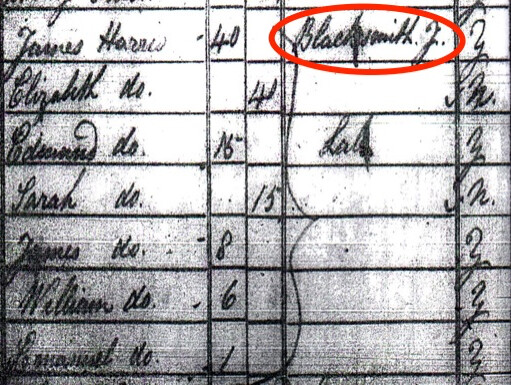 James Harris 40 Blacksmith J. Y
Elizabeth do. 40 N.
Edmund do. 15 Lab Y
Sarah do. 15 N.
James do. 8 Y
William do. 6 Y
Emanuel do. 1 Y